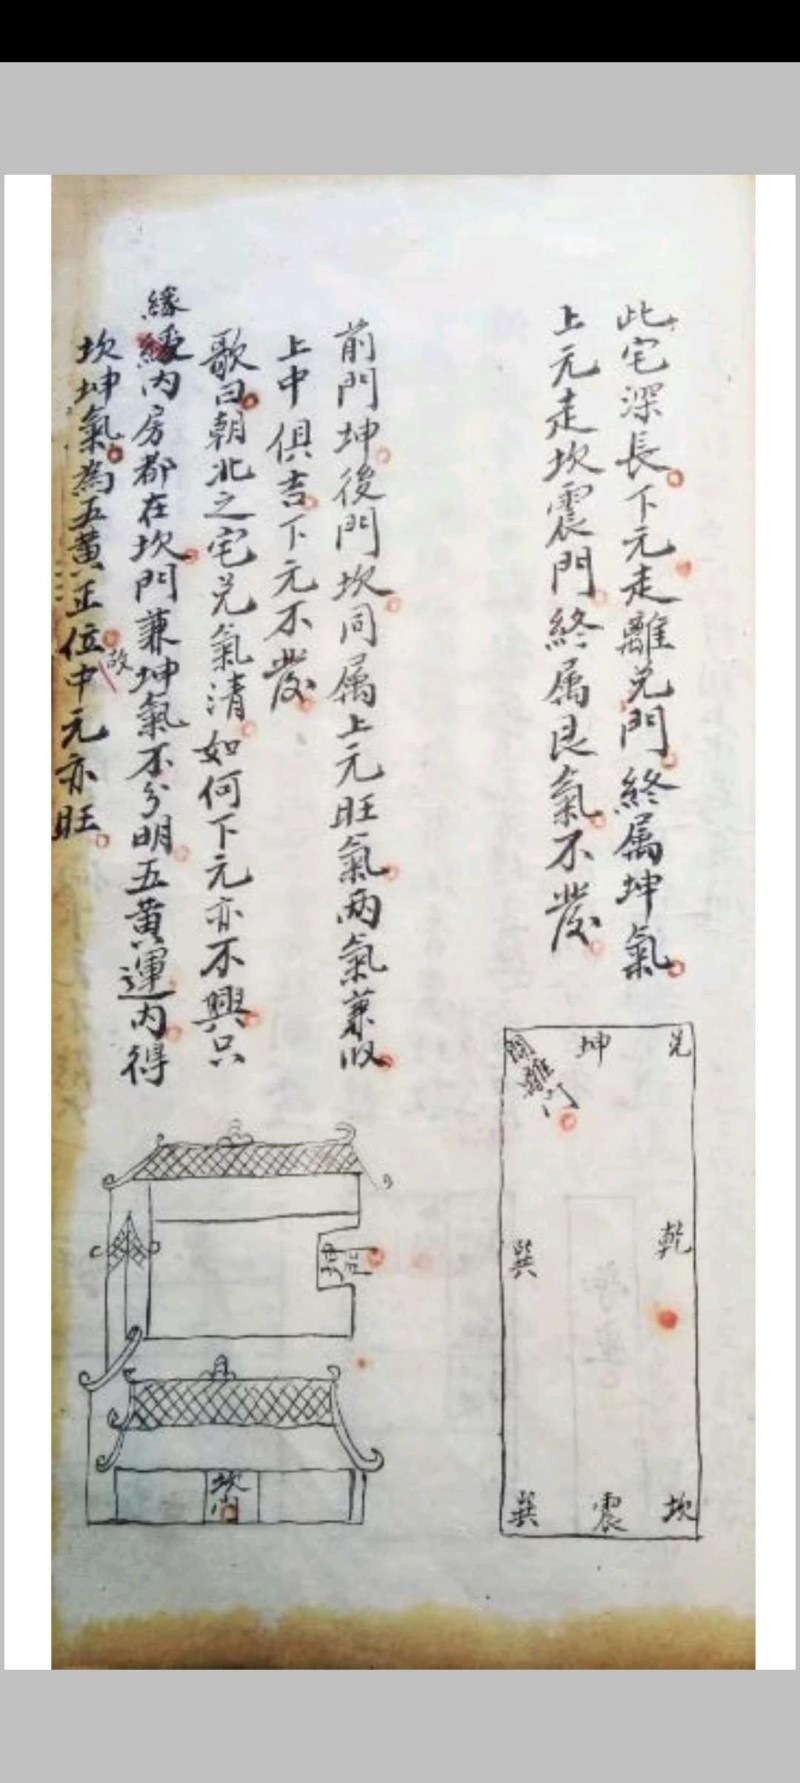 此宅深長下元走離兑門終属坤氣
上元走坎震門終属艮氣不發
前門坤後門坎同属上元旺氣两氣兼收
上中俱吉下元不發
歌曰朝北之宅兑氣清如何下元亦不興只
緣内房都在坎門兼坤氣不分明五黃運内得
坎坤氣為五黃正位故中元亦旺
兑
坤
開離門
乾
巽
坎
震
巽
坎門